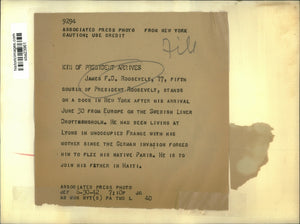 9294
ASSOCIATED PRESS PHOTO FROM NEW YORK
CAUTION: USE CREDIT
File
KIN OF PRESIDENT ARRIVES
JAMES F.D. ROOSEVELT, 17, FIFTH
COUSIN OF PRESIDENT ROOSEVELT, STANDS
ON A DOCK IN NEW YORK AFTER HIS ARRIVAL
JUNE 30 FROM EUROPE ON THE SWEDISH LINER
DROTTNINGHOLM. HE HAD BEEN LIVING AT
LYONS IN UNOCCUPIED FRANCE WITH HIS
MOTHER SINCE THE GERMAN INVASION FORCED
HIM TO FLEE HIS NATIVE PARIS. HE IS TO
JOIN HIS FATHER IN HAITI.
ASSOCIATED PRESS PHOTO
6-30-42